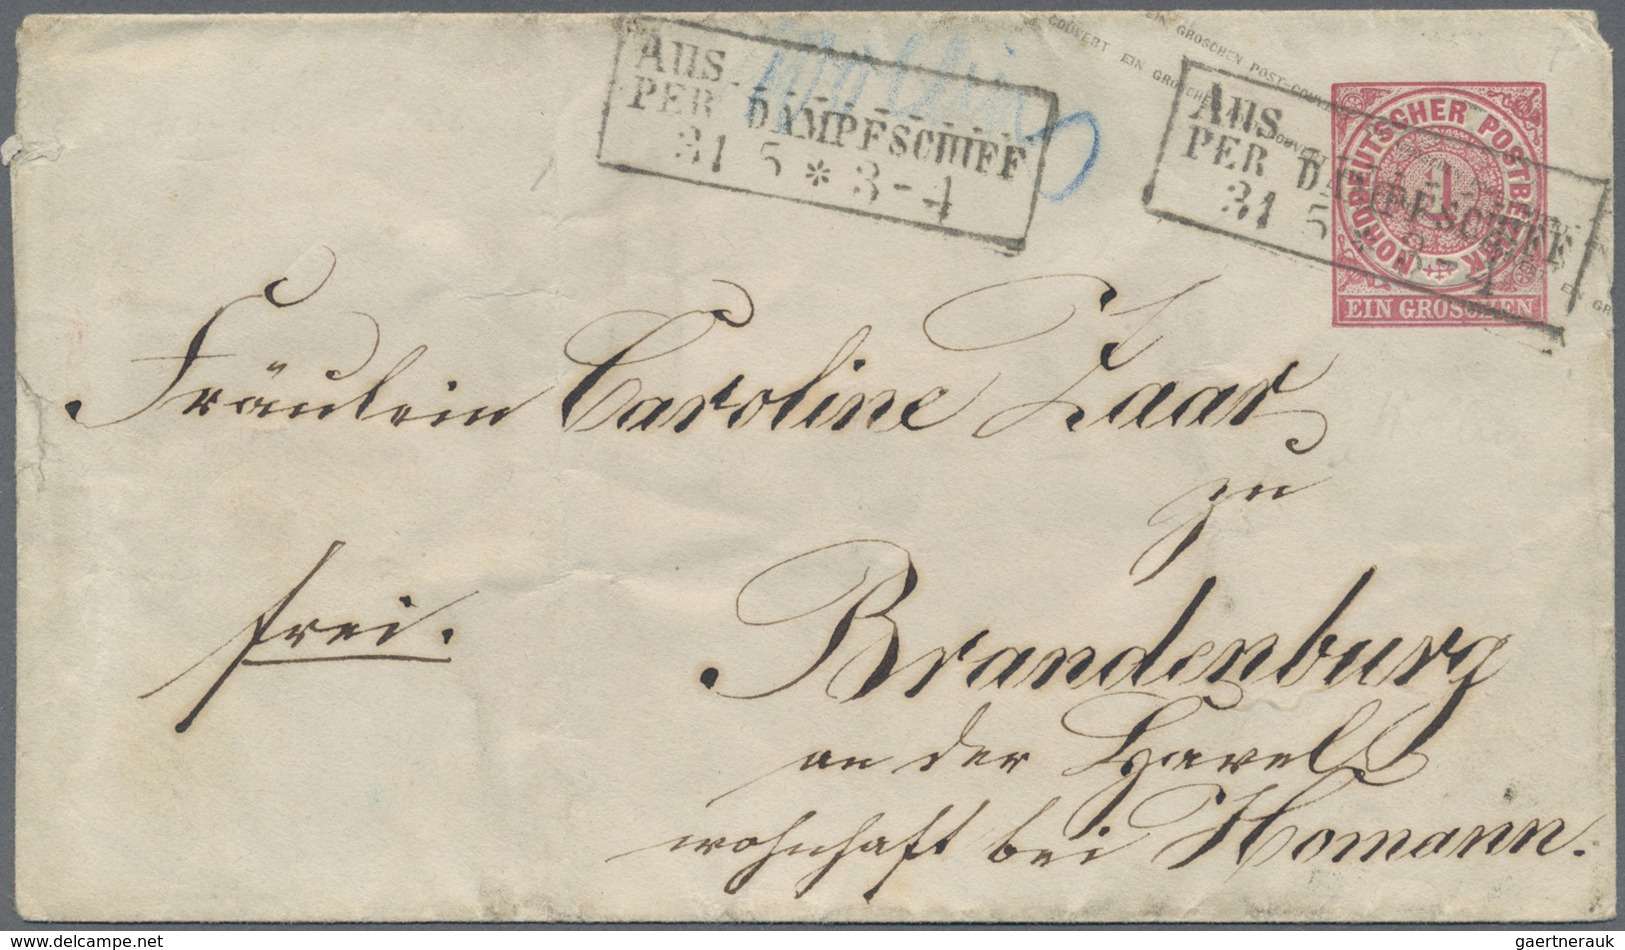 EIN GROSCHEN POST-COUVERT
COUVERT EIN GROSCHEN
AUS
PER DAMPFSCHIFF
31 5 * 3-4
Wollin
AUS
PER DAMPFSCHIFF
31 5 * 3-4
NORDDEUTSCHER POSTBEZIRK
1
EIN GROSCHEN
Fräulein Caroline Zaar
zu
frei.
Brandenburg
an der Havel
wohnhaft bei Homann.
gaertnerauk